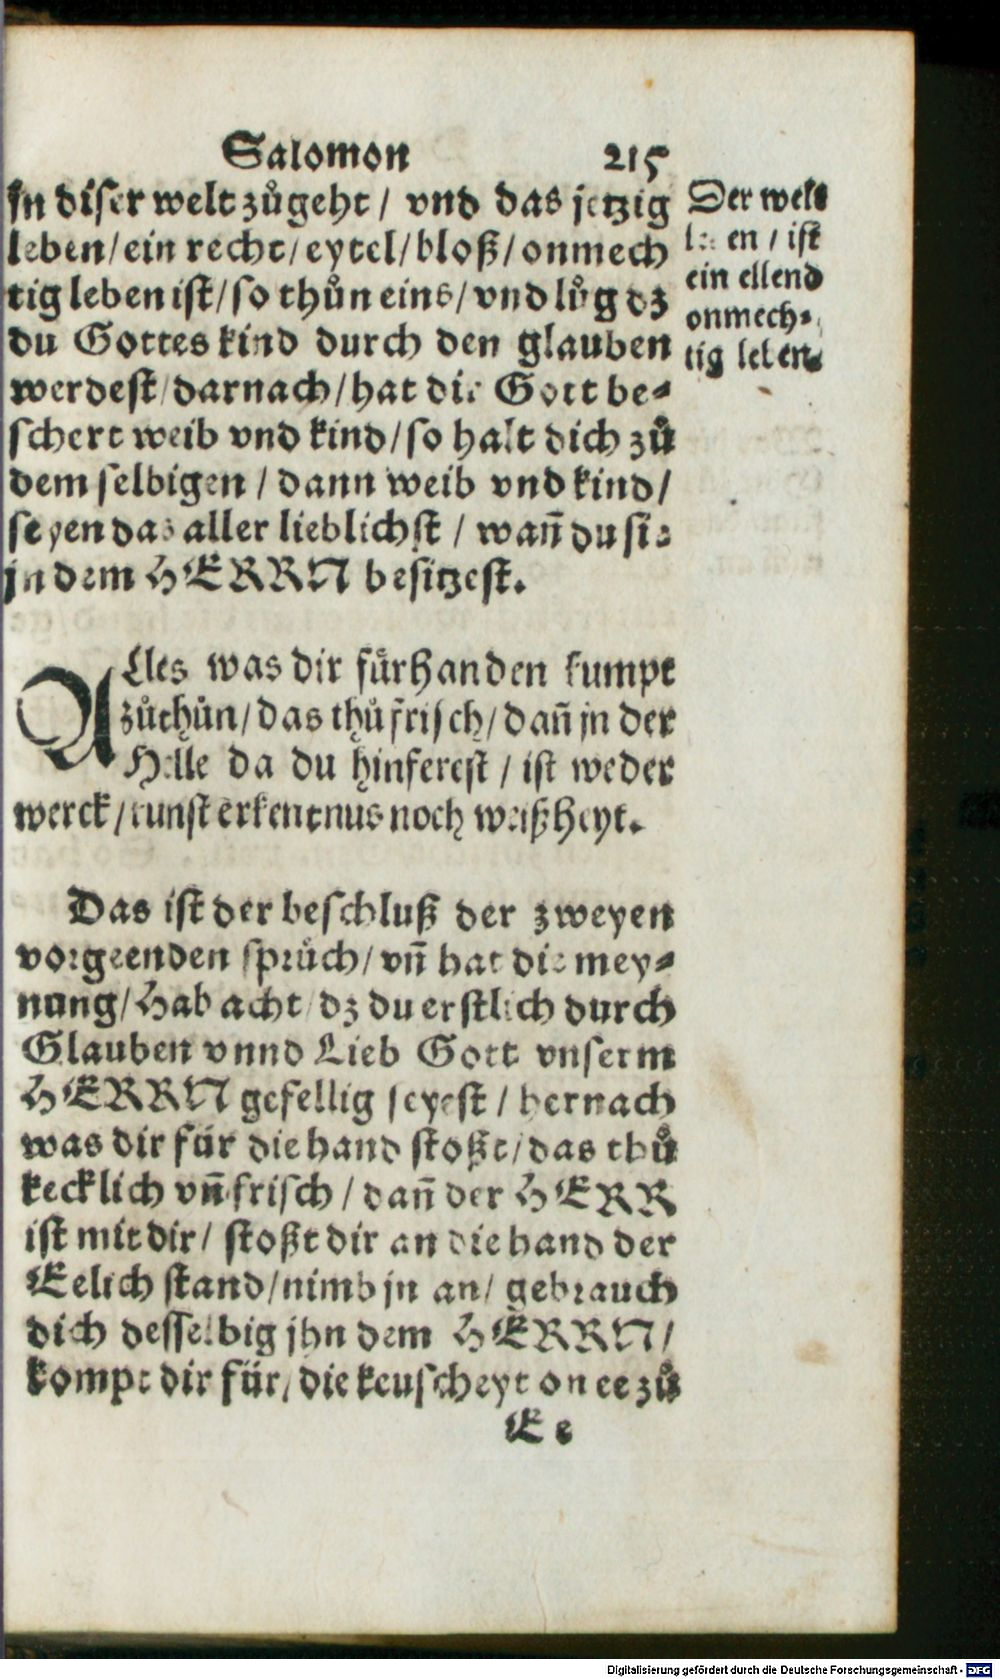 Salomon 215
in diser welt zůgeht / vnd das jetzig
leben / ein recht / eytel / bloß / onmech
tig leben ist / so thůn eins / vnd lůg dz
du Gottes kind durch den glauben
werdest / darnach / hat dir Gott be⸗
schert weib vnd kind / so halt dich zů
dem selbigen / dann weib vnd kind /
seyen das aller lieblichst / wañ du sie
in dem HERRN besitzest.
Der welt
leben / ist
ein ellend
onmech⸗
tig leben.
ALles was dir fürhanden kumpt
zůthůn / das thů frisch / dañ jn der
Helle da du hinferest / ist weder
werck / kunst erkentnus noch weißheyt.
Das ist der beschluß der zweyen
vorgeenden sprüch / vñ hat die mey⸗
nung / Hab acht / dz du erstlich durch
Glauben vnnd Lieb Gott vnserm
HERRN gefellig seyest / hernach
was dir für die hand stoßt / das thů
kecklich vñ frisch / dañ der HERR
ist mit dir / stoßt dir an die hand der
Eelich stand / nimb jn an / gebrauch
dich desselbig jhn dem HERRN /
kompt dir für / die keuscheyt on ee zů
Ee
Digitalisierung gefördert durch die Deutsche Forschungsgemeinschaft - DFG